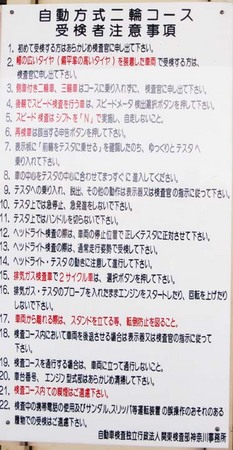 自動方式二輪コース
受検者注意事項
1. 初めて受検する方はあらかじめ検査官に申し出て下さい。
2. 幅の広いタイヤ（偏平率の高いタイヤ）を装着した車両で受検する方は、
検査官に申し出て下さい。
3. 側車付き二輪車、三輪車はコースに乗り入れずに、検査官に申し出て下さい。
4. 後輪でスピード検査を行う車は、スピードメータ検出選択ボタンを押して下さい。
5. スピード検査はシフトを「N」で実施し、自走しないこと。
6. 再検車は該当する申告ボタンを押して下さい。
7. 表示材に「前輪をテスタに乗せる」を確認したのち、ゆっくりとテスタへ
乗り入れて下さい。
8. 車の中心をテスタの中心に合わせてまっすぐに進入してください。
9. テスタへの乗り入れ、脱出、その他の動作は表示器又は検査官の指示に従って下さい。
10. テスタ上では急停止、急発進をしないで下さい。
11. テスタ上ではハンドルを切らないで下さい。
12. ヘッドライト検査の際は、車両の停止位置で正しくテスタに正対させて下さい。
13. ヘッドライト検査の際は、通常走行姿勢で受検して下さい。
14. ヘッドライト・テスタの動きに注意して進行して下さい。
15. 排気ガス検査車で2サイクル車は、選択ボタンを押して下さい。
16. 排気ガス・テスタのプローブを入れたままエンジンをスタートしたり、回転を上げたり
しないで下さい。
17. 車両から離れる際は、スタンドを立てる等、転倒防止を図ること。
18. 検査コース内において車両を後退させる場合は表示器又は検査官の指示に従って下さい。
19. 検査コースを通行する場合は、車両に立って通行しないこと。
20. 車台番号、エンジン型式部はあらかじめ清掃して下さい。
21. 検査コース内での喫煙はご遠慮下さい。
22. 検査中の携帯電話の使用及びサンダル、スリッパ等運転装置の誤操作のおそれのある
履物での受検はご遠慮下さい。
自動車検査独立行政法人関東検査部神奈川事務所